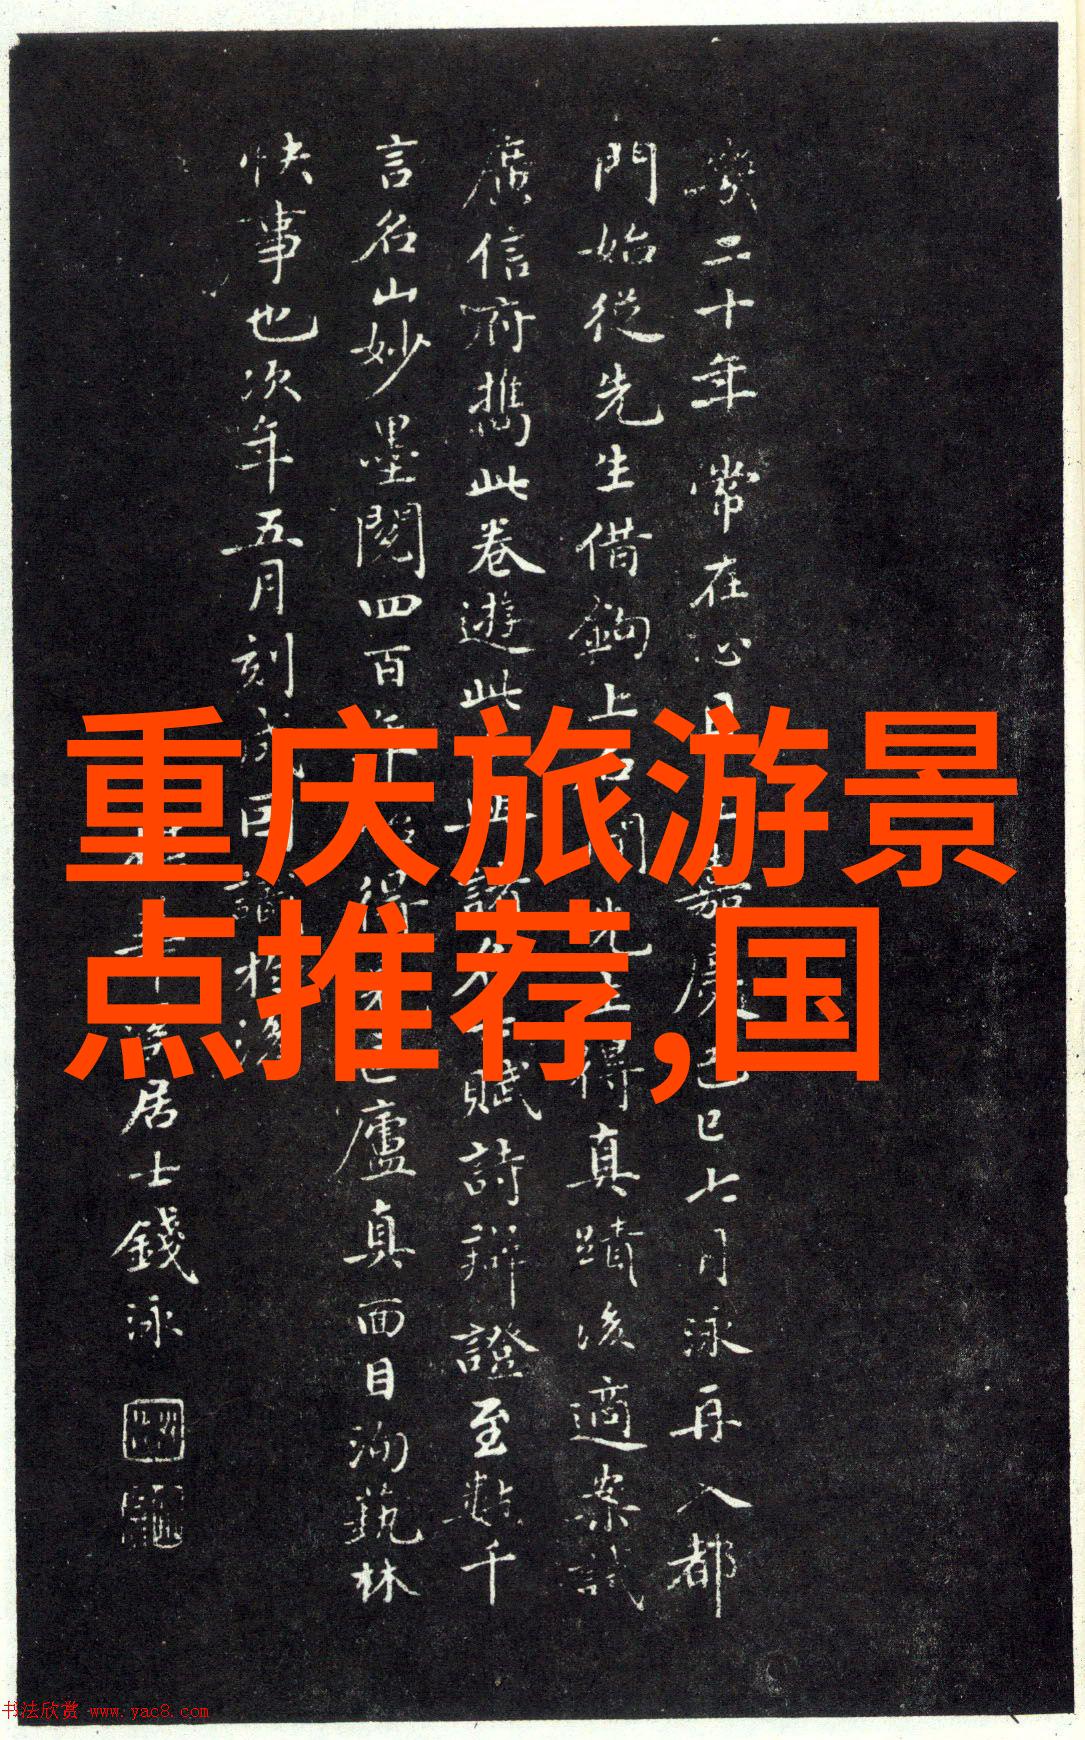 重庆旅游景
点推荐,国
二十年常在心嘉慶己巳七月泳再入都
門始從先生借鉤上石真蹟後適案試
廣信府攜此卷遊此賦詩辨證至數千
言名山妙墨閱四百年得廬真面目洵藝林
快事也次年五月刻成因
居士錢泳
书法欣赏 www.yac8.com